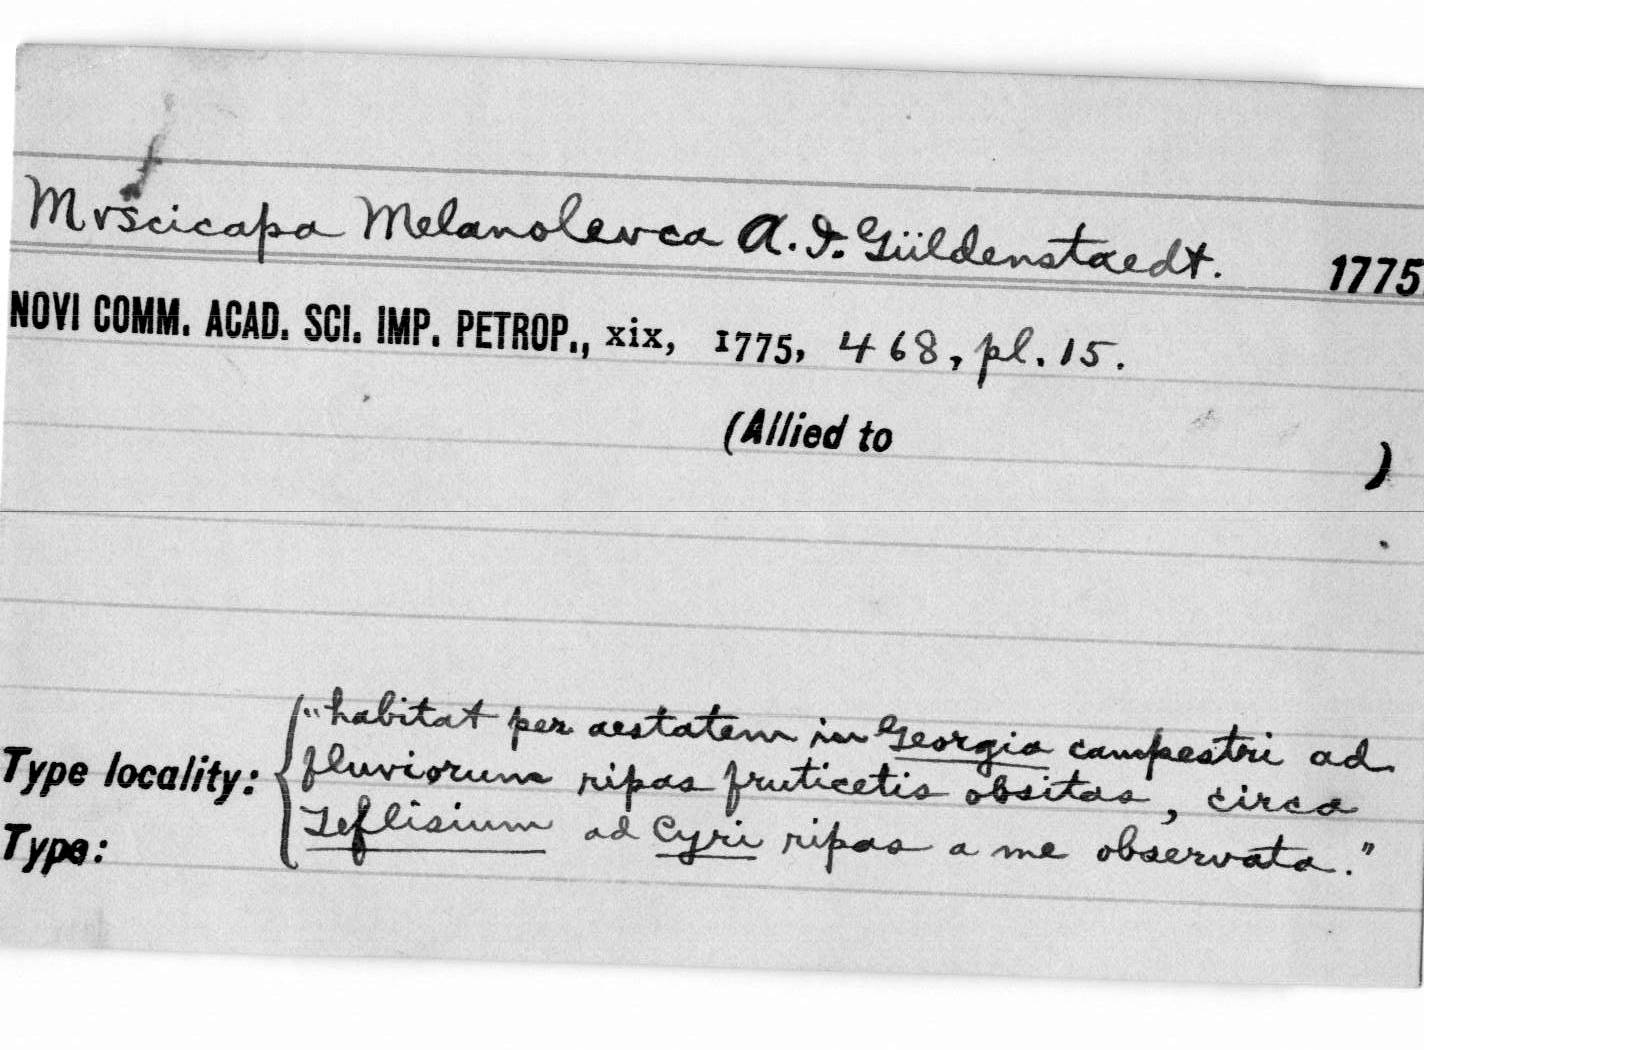 Mvscicapa Melanolevca A. I. Güldenstaedt. 1775
NOVI COMM. ACAD. SCI. IMP. PETROP., xix, 1775, 468, pl. 15.
(Allied to )
"habitat per aestatem in Georgia campestri ad
Type locality: fluviorum ripas fruticetis obsitas, circa
Teflisium ad Cyri ripas a me observata."
Type: